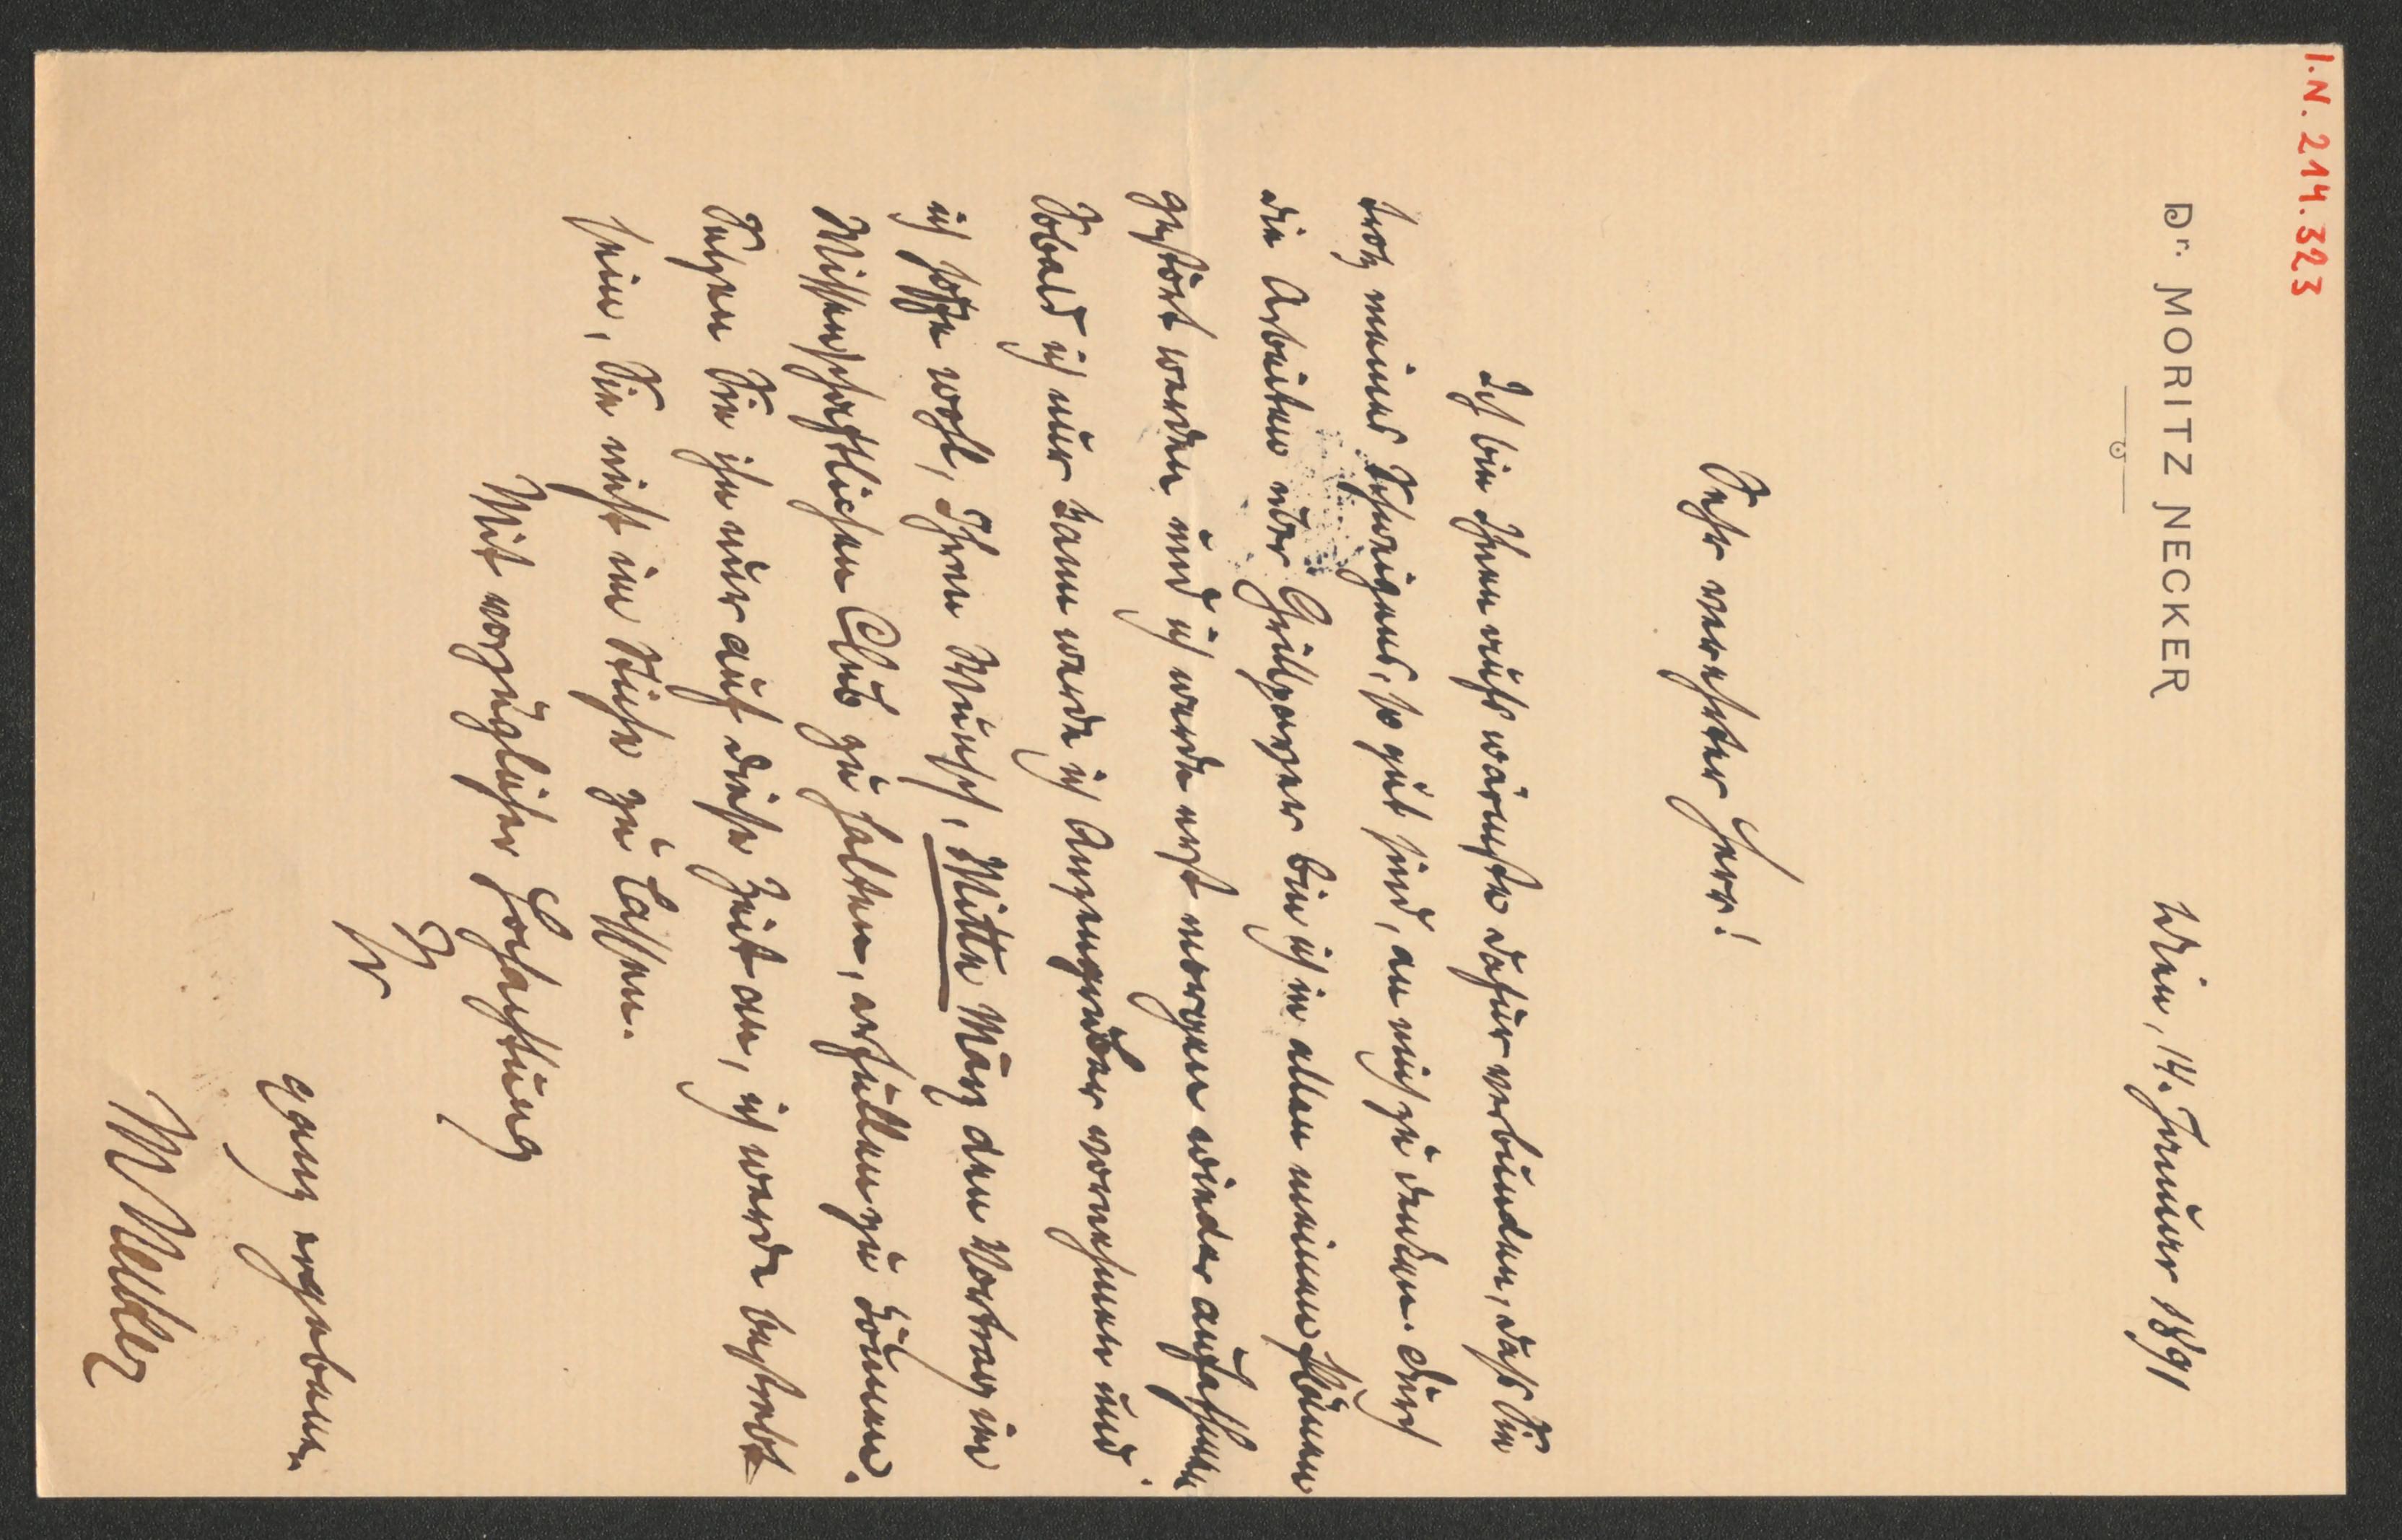 I.N. 214.323
Dr. MORITZ NECKER
Wien, 14. Januar 1891
Sehr verehrter Herr!
Ich bin Ihnen aufs wärmste dafür verbunden, daß Sie
trotz meines Schweigens, so gut sind, an mich zu denken. Durch
die Arbeiten über Grillparzer bin ich in allen meinen Plänen
gestört worden und ich werde erst morgen wieder aufathmen
Sobald ich nur kann werde ich Anzengruber vornehmen und
ich hoffe wohl, Ihren Wunsch, Mitte März den Vortrag im
Wissenschaftlichen Club zu halten, erfüllen zu können.
Setzen Sie ihn nur auf diese Zeit an, ich werde bestrebt
sein, Sie nicht im Stiche zu lassen.
Mit vorzüglicher Hochachtung
Ihr
ganz ergebener
M Necker